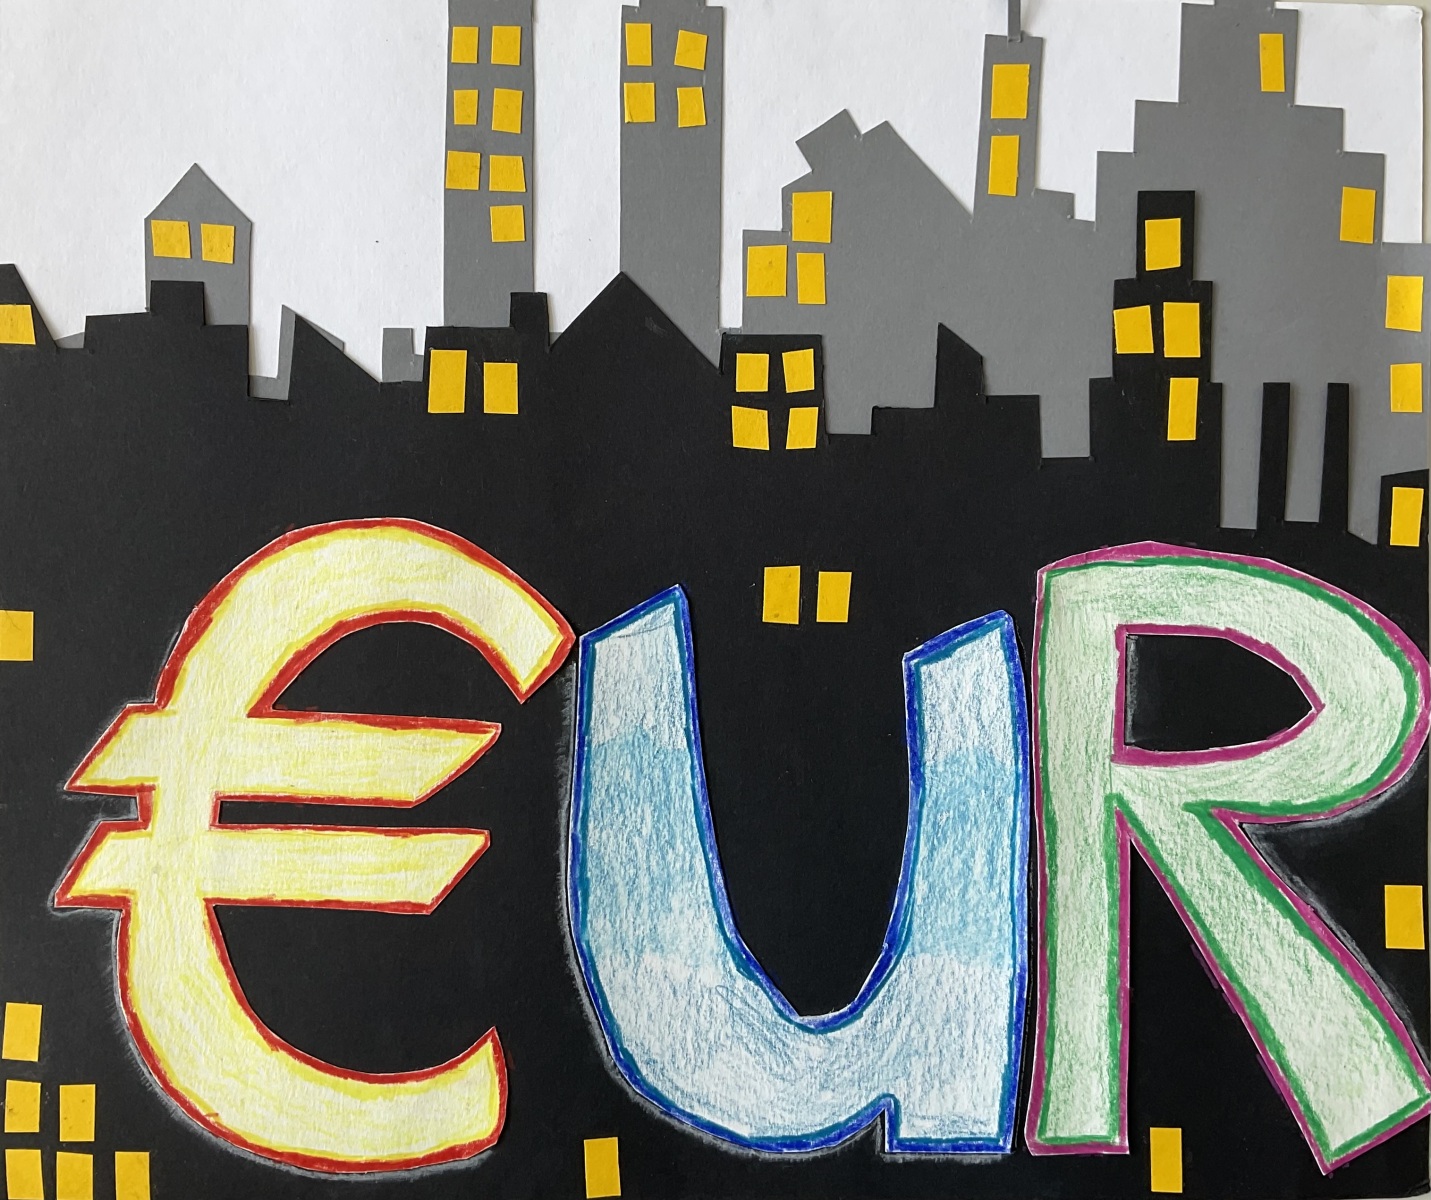 €uR